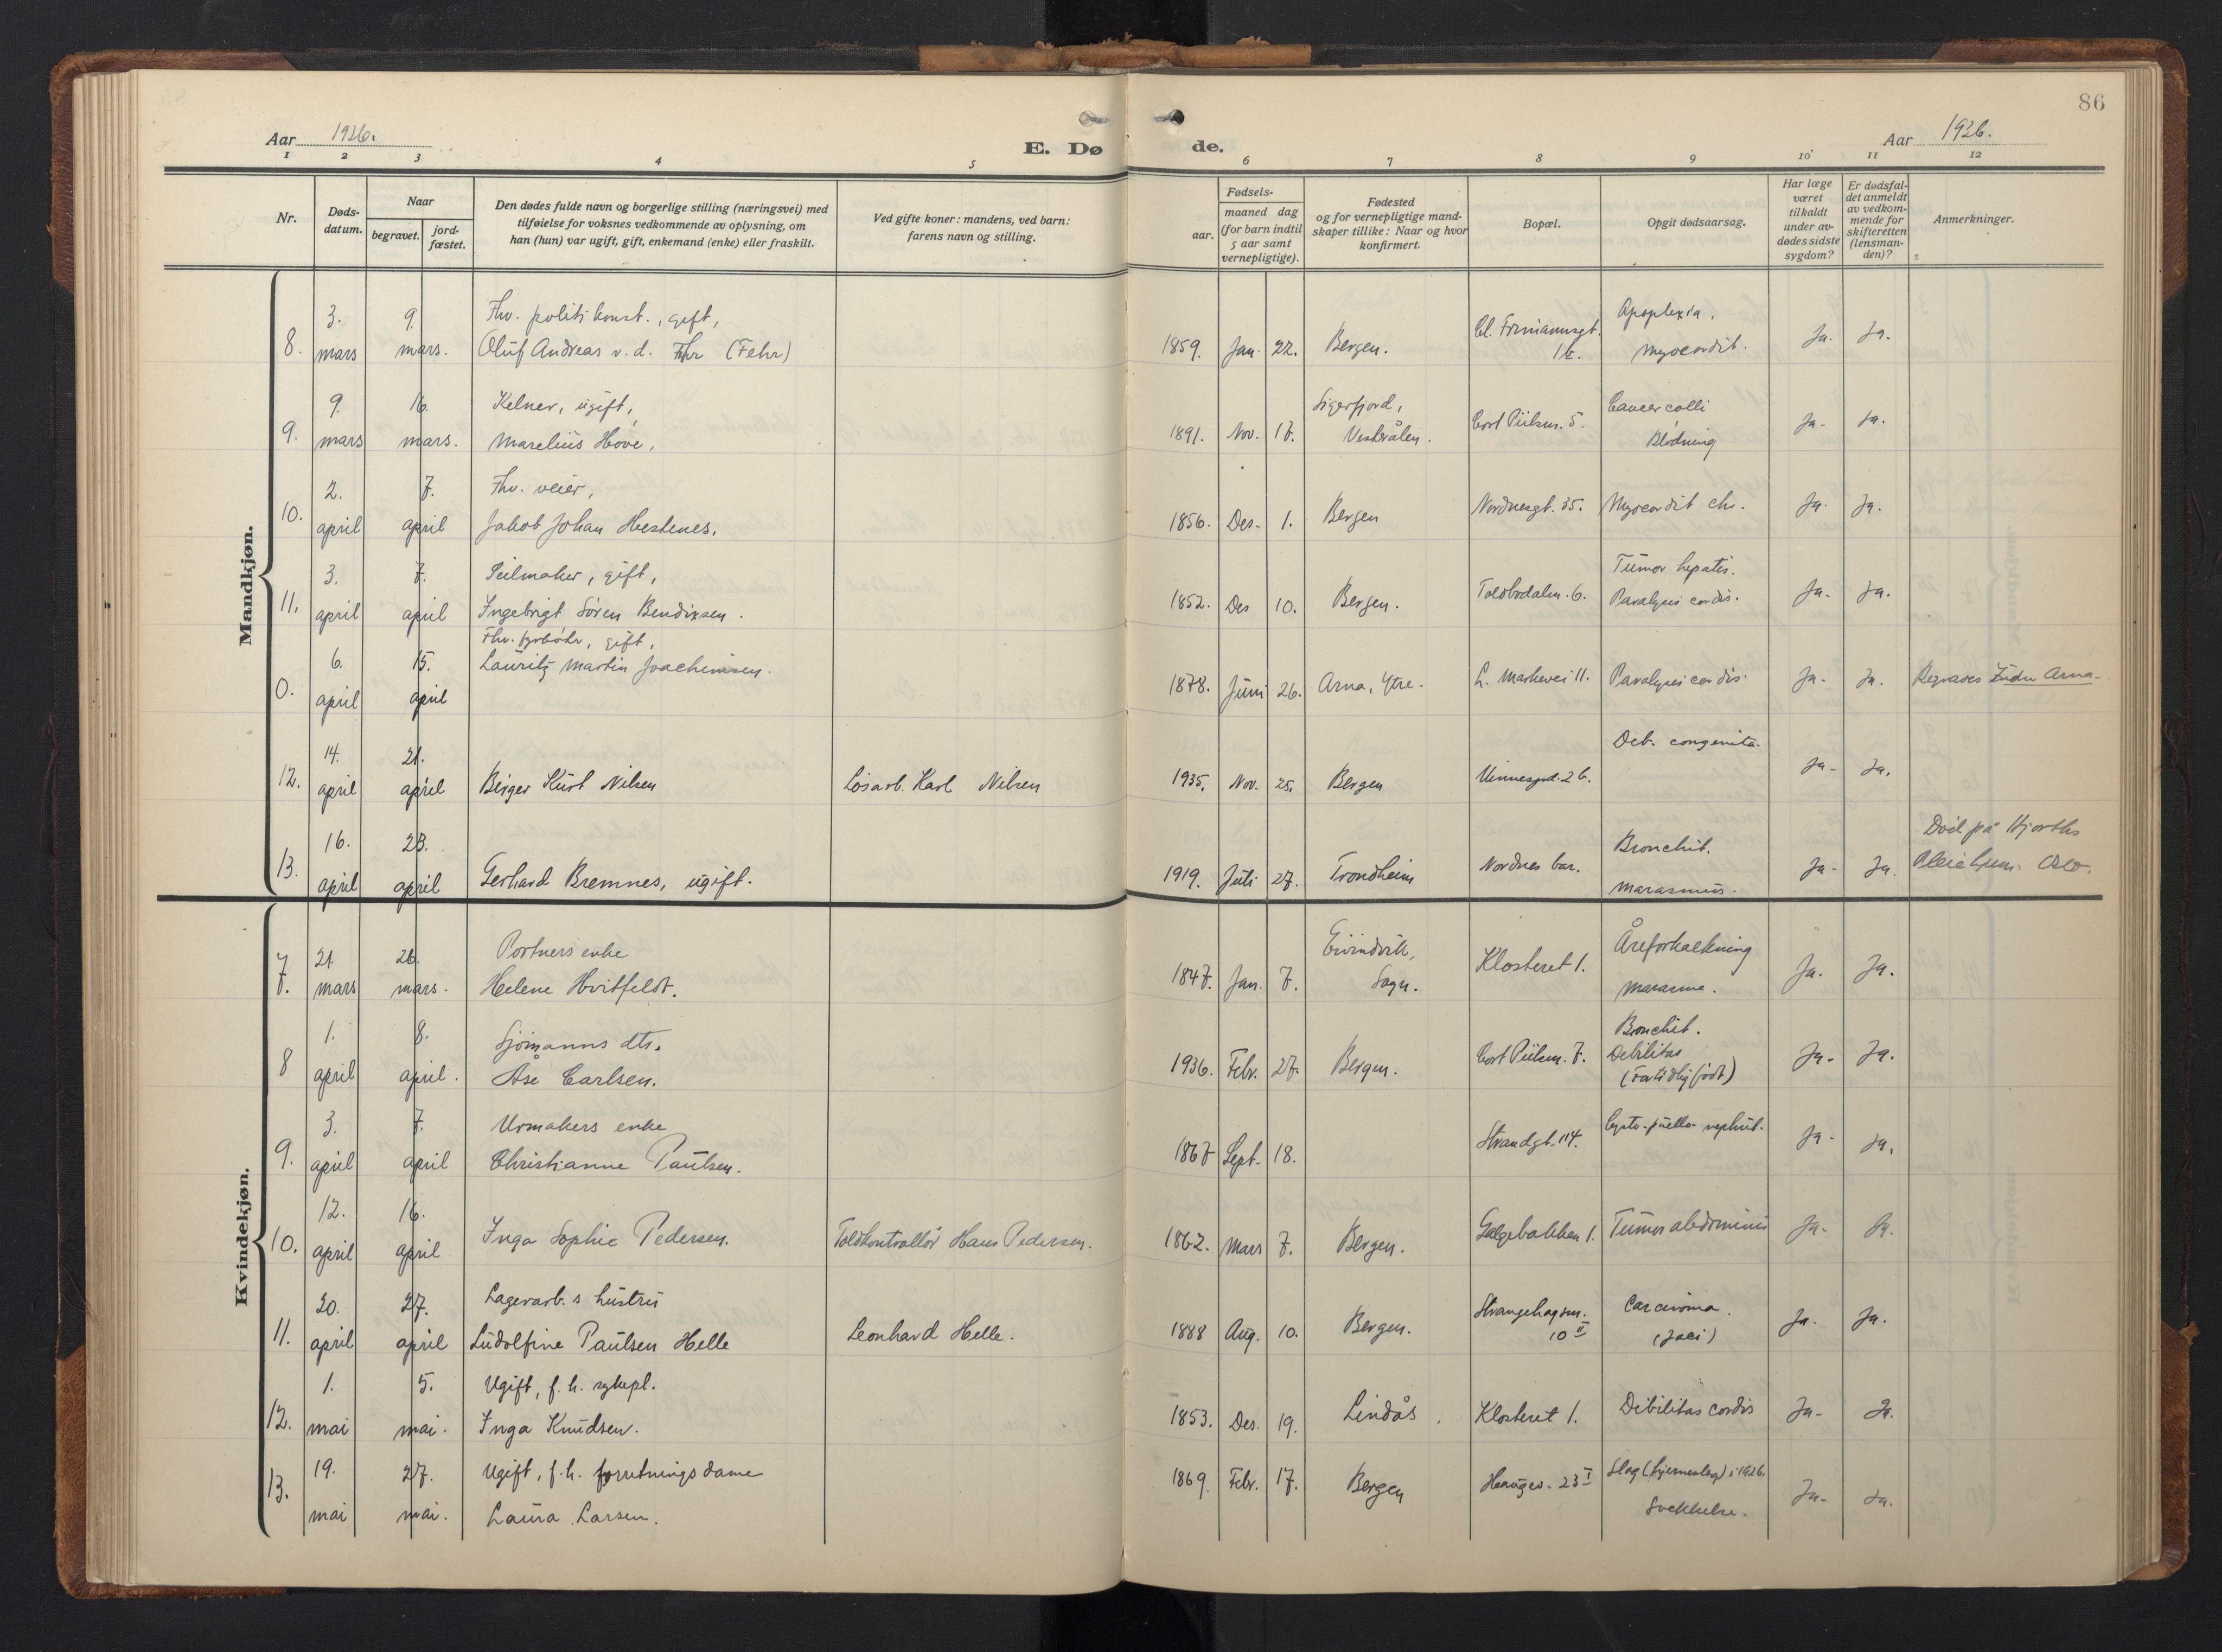 86
Aar 1926.
E. Dø
de.
Aar 1926.
1 2 3 4 5 6 7 8 9 10 11 12
Nr.
Døds-
datum.
Naar
begravet.
jord-
fæstet.
Den dødes fulde navn og borgerlige stilling (næringsvei) med
tilføielse for voksnes vedkommende av oplysning, om
han (hun) var ugift, gift, enkemand (enke) eller fraskilt.
Ved gifte koner: mandens, ved barn:
farens navn og stilling.
Fødsels-
aar.
maaned dag
(for barn indtil
5 aar samt
vernepligtige).
Fødested
og for vernepligtige mand-
skaper tillike: Naar og hvor
konfirmert.
Bopæl.
Opgit dødsaarsag.
Har læge
været
tilkaldt
under av-
dødes sidste
sygdom?
Er dødsfal-
det anmeldt
av vedkom-
mende for
skifteretten
(lensman-
den)?
Anmerkninger.
Mandkjøn.
3. 9. Fhv. politikonst., gift, Apoplexia.
8. mars mars. Oluf Andreas v.d. Fehr (Fehr) 1859. Jan. 22. Bergen. 16. myocardit. Ja. Ja.
9. 16. Kelner, ugift, Sigerfjord, Cancer colli
9. mars mars. Marelius Hove, 1891. Nov. 17. Vesterålen. Cort Piilsm. 5. Blødning Ja- Ja.
2. 7. Fhv. veier,
10. april april Jakob Johan Hestenes. 1856. Des. 1. Bergen Nordnesgt. 35. Myocardit chr. Ja. Ja.
3. 7. Seilmaker, gift, Tumor hepatis.
11. april april Ingebrigt Sören Bendixsen. 1852. Des 10. Bergen. Toldbodalm. 6. Paralysis cordis. Ja. Ja.
Fhv. fyrbøter, gift,
6. 15. Lauritz Martin Joachimsen.
0. april april 1878. Juni 26. Arna, Ytre. L. Markevei 11. Paralysis cordis. Ja. Ja. Begraves Indre Arna.
14. 21. Deb. congenita.
12. april april Birger Kurt Nilsen Løsarb. Karl Nilsen 1935. Nov. 25. Bergen 26. Ja- Ja.
16. 23. Bronchit. Död på Hjorths
13. april april Gerhard Bremnes, ugift. 1919. Juli 27. Trondheim Nordnes bar. marasmus. Ja- Ja. Pleiehjem. Oslo.
Kvindekjøn.
21. 26. Portners enke Eivindvik, Åreforkalkning
7. mars mars. Helene Hvitfeldt. 1847. Jan. 7. Sogn. Klosteret 1. marasme. Ja. Ja.
1. 8. Sjömanns dtr. Bronchit.
8 april april. Åse Carlsen. 1936. Febr. 27. Bergen. Cort Piilsm. 7. Debilitas Ja- Ja.
(For tidlig född)
3. 7. Urmakers enke
9. april april Christianne Paulsen. 1867 Sept. 18. Strandgt. 114. Ja- Ja.
12. 16.
10. april april Inga Sophie Pedersen. Toldkontrollör Hans Pedersen. 1862. Mars 7. Bergen. Galgebakken 1. Tumor abdominis Ja- Ja.
20. 27. Lagerarb.s hustru Strangehagen. Carcinoma.
11. april april Ludolfine Paulsen Helle Leonhard Helle. 1888 Aug. 10. Bergen. 10 II Ja. Ja.
1. 5. Ugift, f.h. sykepl.
12. mai mai. Inga Knudsen. 1853. Des. 19. Lindås. Klosteret 1. Debilitas cordis Ja- Ja.
19. 27. Ugift, f.h. forretningsdame Slag (hjerneslag) i 1926.
13. mai mai. Laura Larsen. 1869. Febr. 17. Bergen Haugev. 23 I Svekkelse. Ja- Ja.